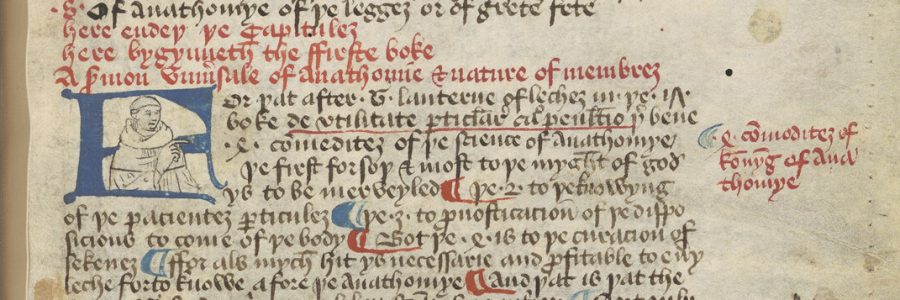 Of anathomye of þe leggez or of grete fete
here endeþ þe Capitulez
here bygynneth the ffirste boke
A s̄mon vniūsale of anathomie & nature of membrez
For þat after · G · lanterne of lechez in þe · ix ·
boke de vtilitate þ bene
· 4 · cōmoditez of þe science of anathomye
þe first forsoþ & most to þe myght of god
ys to be merveyled ¶ þe · 2 · to þe knowyng
of þe pacientez ꝑticulez ¶ þe · 3 · to ꝓnosticacioū of þe dispo
sicions to come of þe body ¶ Bot þe · 4 · is to þe curacion of
sekenez ¶ ffor als mych hit ys necessarie and ꝓfitable to eūy
leche forto knowe afore þe Anathomye ¶ And þat is þat the
· 4 · cōmoditez of
konyng of Ana
thomye